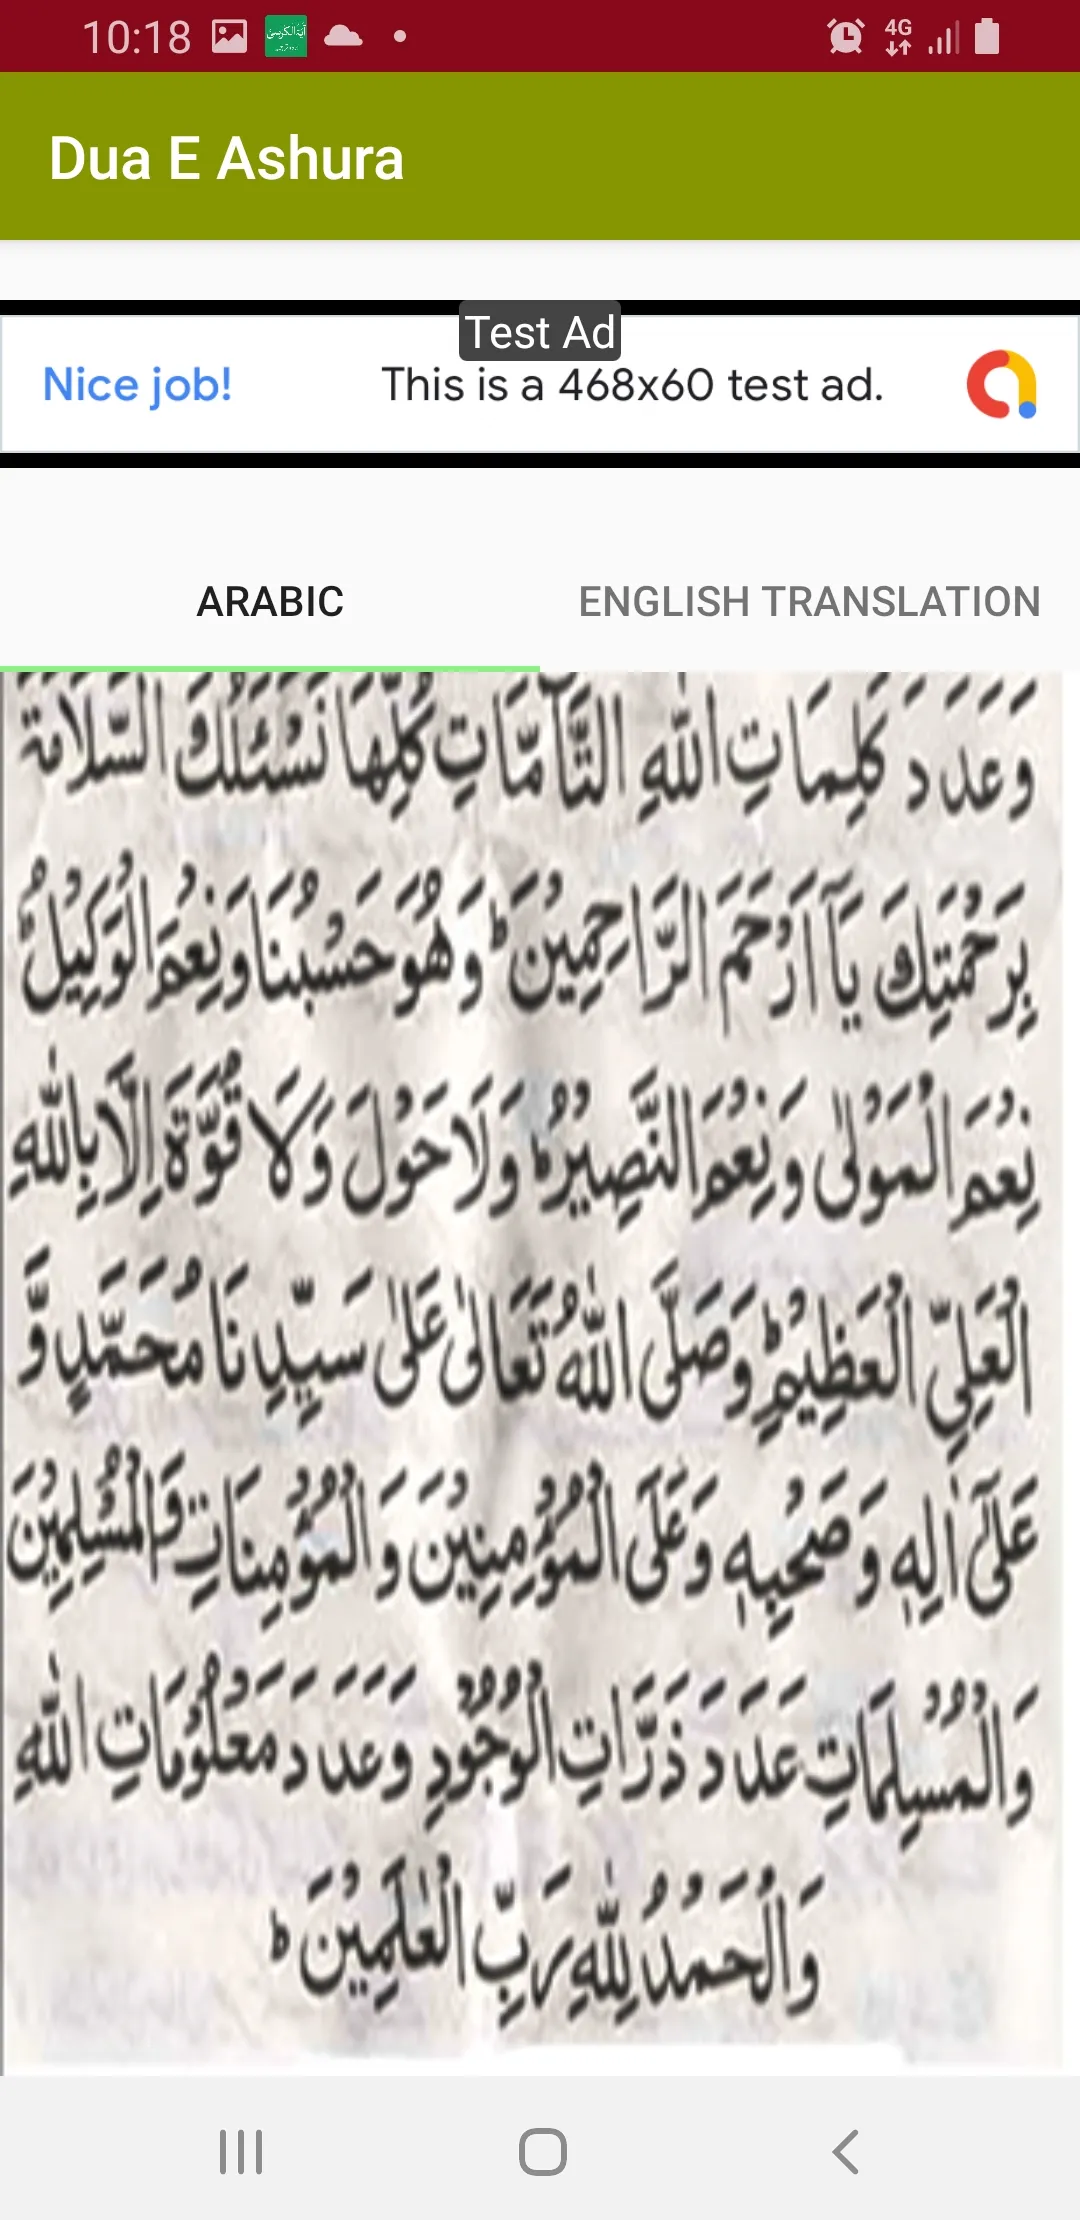 10:18
4G
Dua E Ashura
Test Ad
Nice job!
This is a 468x60 test ad.
ARABIC
ENGLISH TRANSLATION
وَعَدَدَ كَلِمَاتِ اللّٰهِ التَّآمَّاتِ كُلِّهَا نَسْئَلُكَ السَّلَامَةَ
بِرَحْمَتِكَ يَآ اَرْحَمَ الرَّاحِمِيْنَ ؕ وَهُوَ حَسْبُنَا وَنِعْمَ الْوَكِيْلُ
نِعْمَ الْمَوْلٰى وَنِعْمَ النَّصِيْرُ ؕ وَلَا حَوْلَ وَلَا قُوَّةَ اِلَّا بِاللّٰهِ
الْعَلِيِّ الْعَظِيْمِ ؕ وَصَلَّى اللّٰهُ تَعَالٰى عَلٰى سَيِّدِنَا مُحَمَّدٍ وَّ
عَلٰٓى اٰلِهٖ وَصَحْبِهٖ وَعَلَى الْمُؤْمِنِيْنَ وَالْمُؤْمِنَاتِ وَالْمُسْلِمِيْنَ
وَالْمُسْلِمَاتِ عَدَدَ ذَرَّاتِ الْوُجُوْدِ وَعَدَدَ مَعْلُوْمَاتِ اللّٰهِ
وَالْحَمْدُ لِلّٰهِ رَبِّ الْعٰلَمِيْنَ ؕ